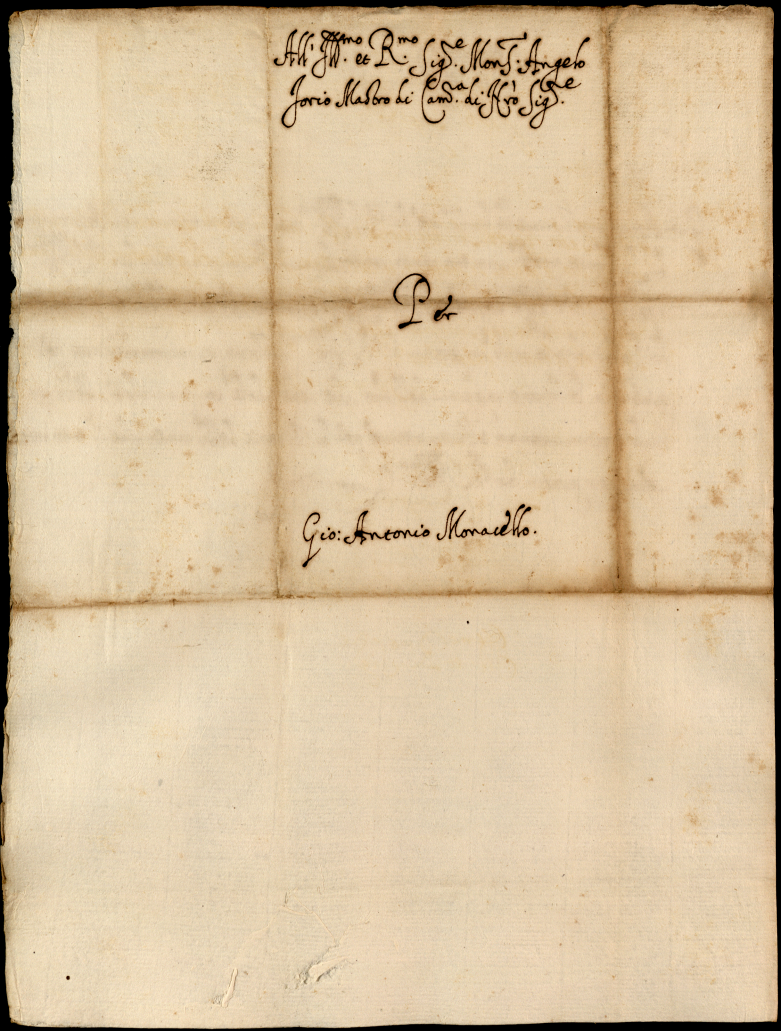 All' Ill.mo et R.mo Sig.e Mons.r Angelo
Jorio Mastro di Cam.a di Nrò Sig.e
Per
Gio: Antonio Monacello.